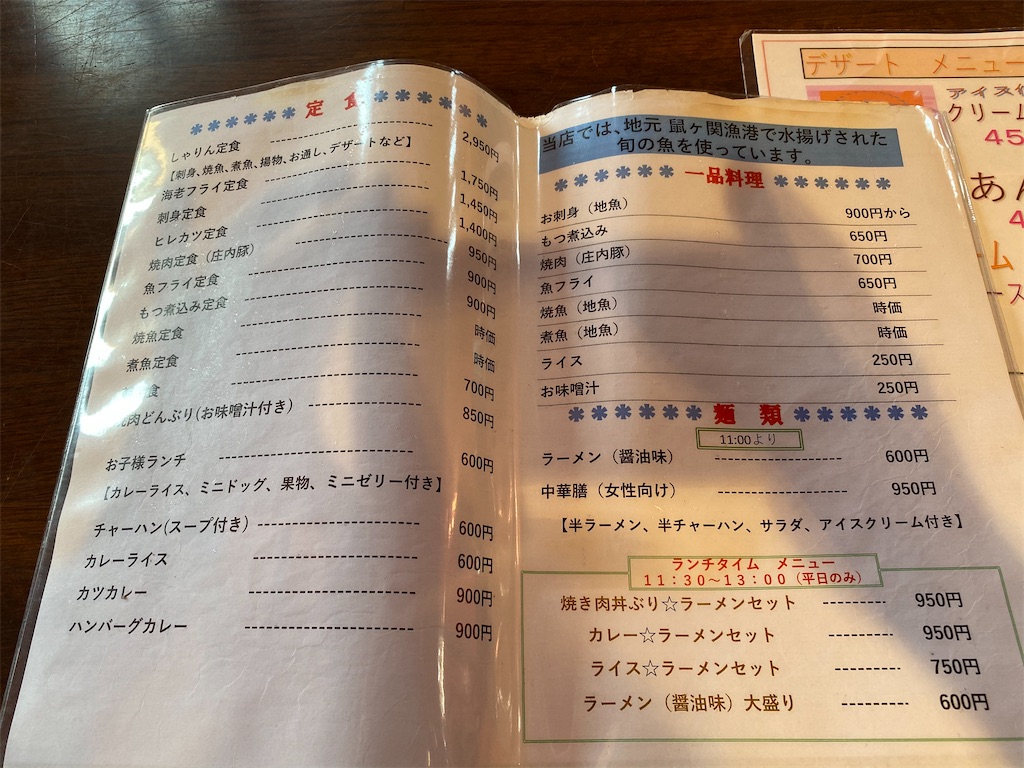 ✽✽✽✽✽✽ 定 食 ✽✽✽✽✽✽
しゃりん定食 ---------- 2,950円
【刺身、焼魚、煮魚、揚物、お通し、デザートなど】
海老フライ定食 ---------- 1,750円
刺身定食 ---------- 1,450円
ヒレカツ定食 ---------- 1,400円
焼肉定食（庄内豚） ---------- 950円
魚フライ定食 ---------- 900円
もつ煮込み定食 ---------- 900円
焼魚定食 ---------- 時価
煮魚定食 ---------- 時価
食 ---------- 700円
肉どんぶり(お味噌汁付き) ---------- 850円
お子様ランチ ---------- 600円
【カレーライス、ミニドッグ、果物、ミニゼリー付き】
チャーハン(スープ付き) ---------- 600円
カレーライス ---------- 600円
カツカレー ---------- 900円
ハンバーグカレー ---------- 900円
当店では、地元 鼠ヶ関漁港で水揚げされた
旬の魚を使っています。
✽✽✽✽✽✽ 一品料理 ✽✽✽✽✽✽
お刺身（地魚） 900円から
もつ煮込み 650円
焼肉（庄内豚） 700円
魚フライ 650円
焼魚（地魚） 時価
煮魚（地魚） 時価
ライス 250円
お味噌汁 250円
✽✽✽✽✽✽ 麺 類 ✽✽✽✽✽✽
11:00より
ラーメン（醤油味） ---------- 600円
中華膳（女性向け） ---------- 950円
【半ラーメン、半チャーハン、サラダ、アイスクリーム付き】
ランチタイム メニュー
11：30～13：00（平日のみ）
焼き肉丼ぶり☆ラーメンセット --------- 950円
カレー☆ラーメンセット --------- 950円
ライス☆ラーメンセット --------- 750円
ラーメン（醤油味）大盛り --------- 600円
デザート メニュー
アイス
クリーム
45
あん
4
ーム
ース